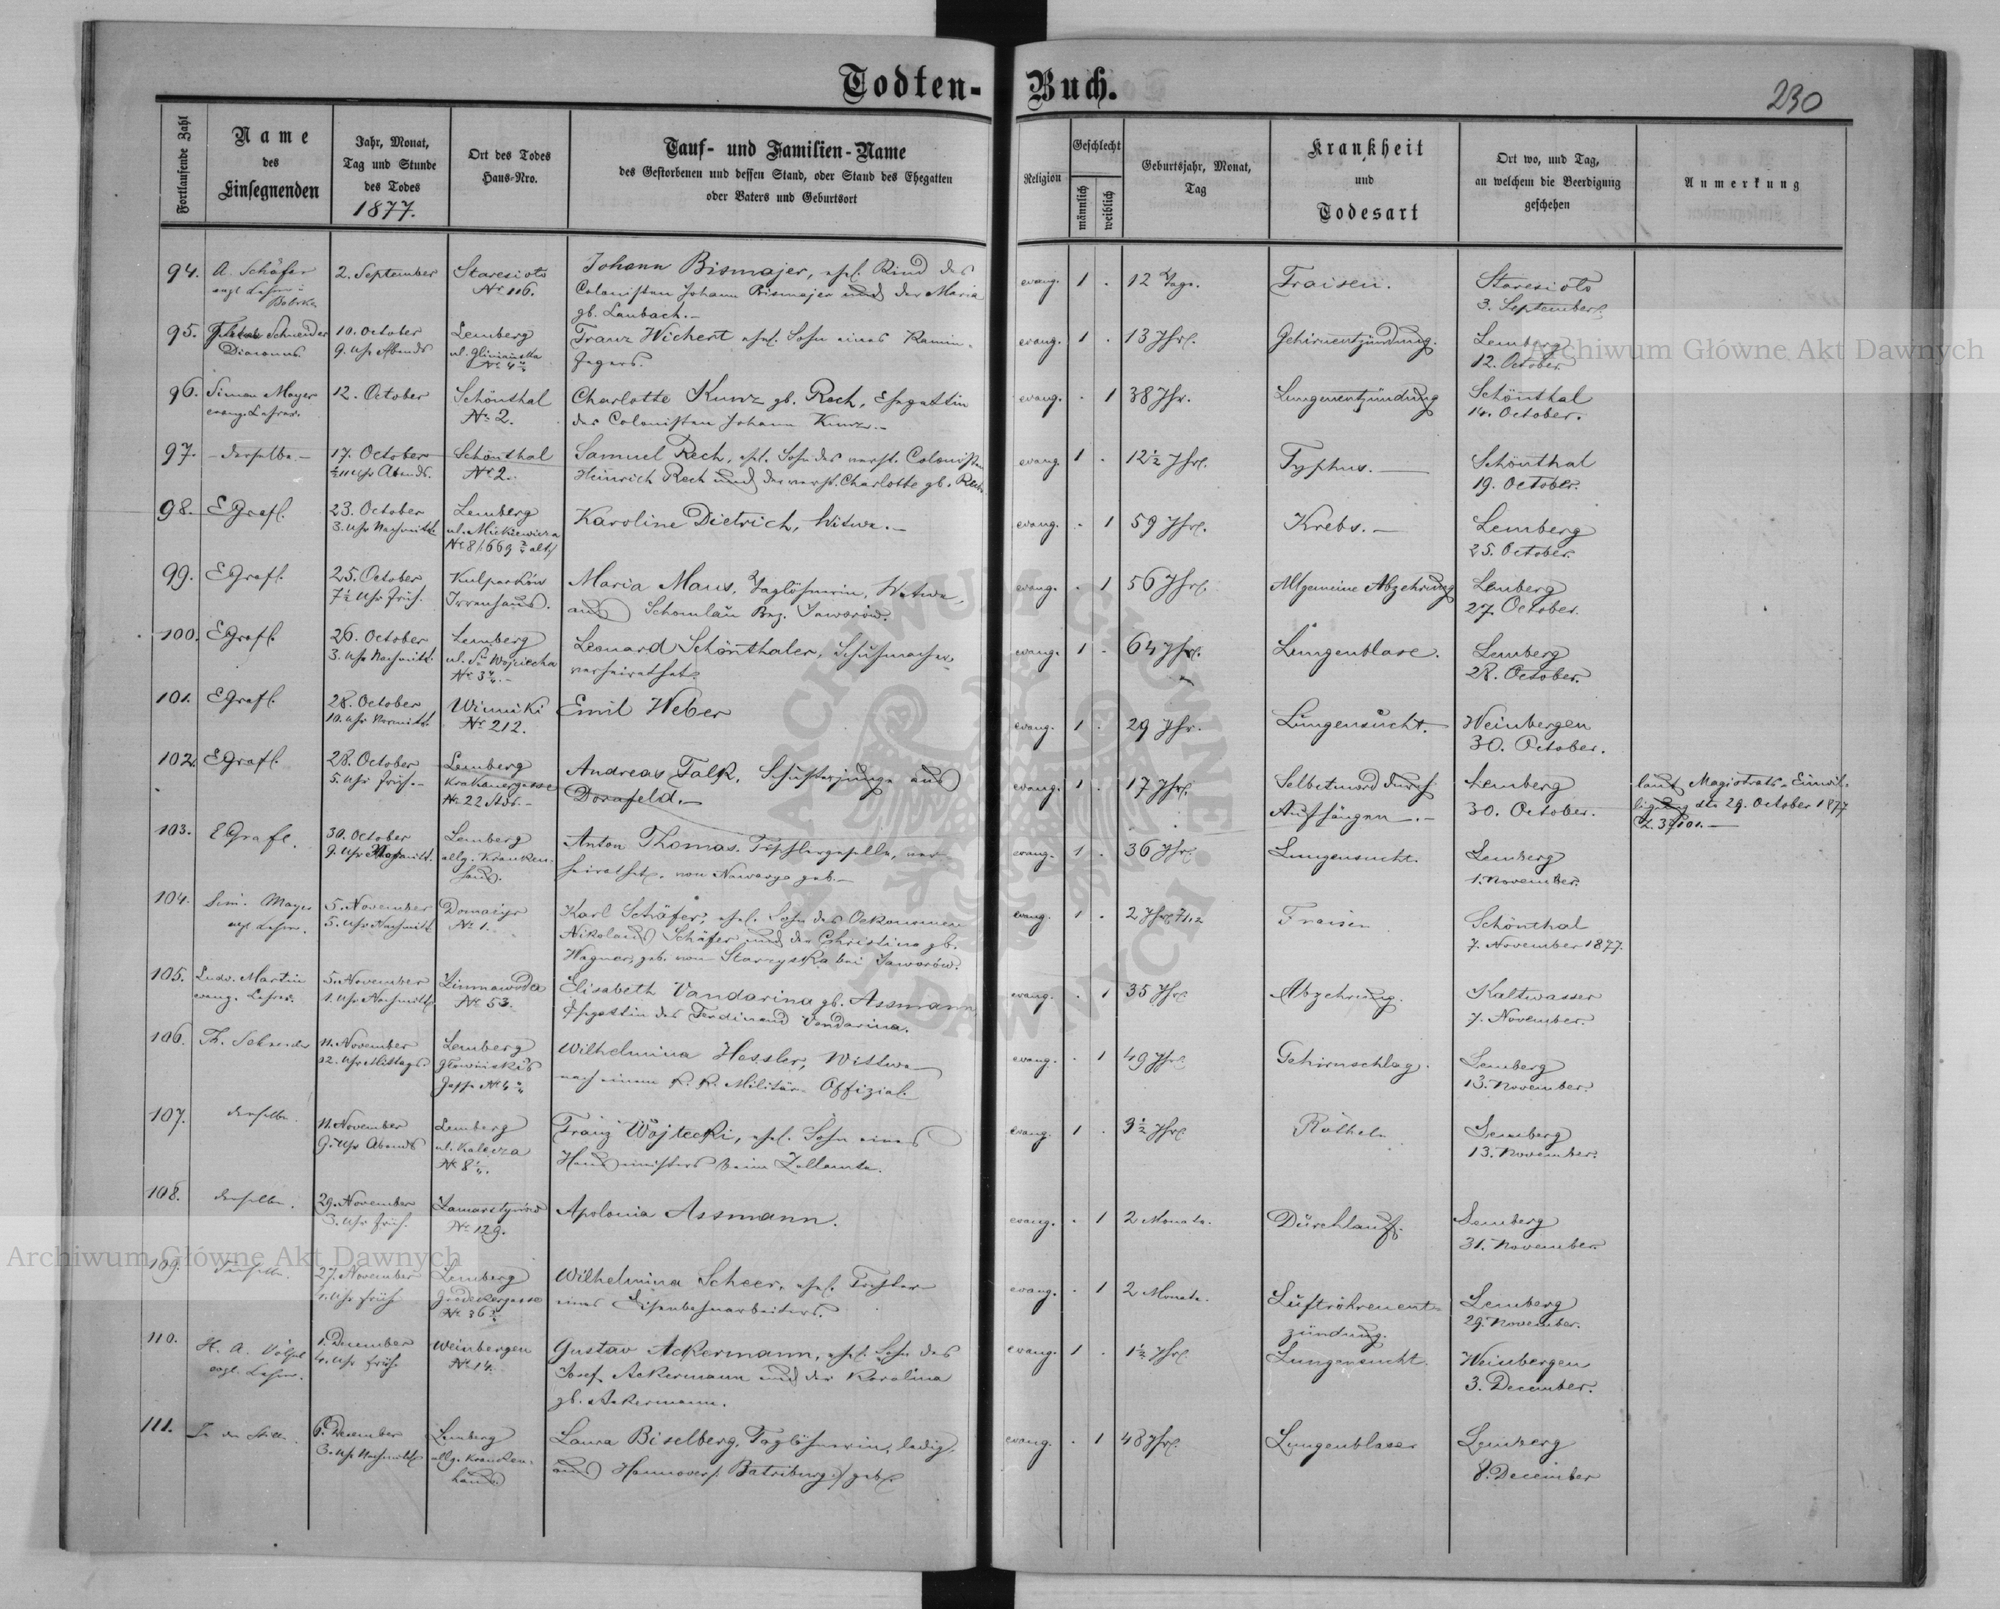 Todten- Buch.
230
Fortlaufende Zahl
Name des Einsegnenden
Jahr, Monat, Tag und Stunde des Todes
1877.
Ort des Todes Haus-Nro.
Tauf- und Familien-Name
des Gestorbenen und dessen Stand, oder Stand des Ehegatten
oder Vaters und Geburtsort
Religion
Geschlecht
männlich
weiblich
Geburtsjahr, Monat, Tag
Krankheit und Todesart
Ort wo, und Tag, an welchem die Beerdigung geschehen
Anmerkung
94. A. Schäfer 2. September Staresioło Johann Bismajer, ehel. Kind des evang. 1 . 12 Tage. Fraisen. Staresioło
Nr 116. Colonisten Johann Bismajer und der Maria 3. September.
gb. Laubach.-
95. Schneider 10. October Lemberg Franz Wichert ehel. Sohn eines Kamin- evang. 1 . 13 Jhr. Gehirnentzündung. Lemberg
Diaconus 9. Uhr Abends fegers. 12. October.
96. Simon Mayer 12. October Schönthal Charlotte Kunz gb. Rech, Ehegattin evang. . 1 38 Jhr. Lungenentzündung Schönthal
evang. Lehrer. Nr 2. des Colonisten Johann Kunz.- 14. October.
97. - derselbe - 17. October Schönthal Samuel Rech, ehl. Sohn des verst. Colonisten evang. 1 . 12½ Jhr. Typhus. Schönthal
½11 Uhr Abends. Nr 2. Heinrich Rech und der verst. Charlotte gb. Rech. 19. October.
98. E Grafl. 23. October Lemberg Karoline Dietrich, Witwe.- evang. . 1 59 Jhr. Krebs.- Lemberg
3. Uhr Nachmitt. ul. Mickiewicza 25. October.
99. E Grafl. 25. October Kulparków Maria Maus, Taglöhnerin, Witwe, evang. . 1 56 Jhr. Allgemeine Abzehrung Lemberg
7½ Uhr früh. Irrenhaus. aus Schomlau Bez. Jaworów. 27. October.
100. E Grafl. 26. October Lemberg Leonard Schönthaler, Schuhmacher, evang. 1 . 64 Jhr. Lungenblase. Lemberg
3. Uhr Nachmitt. verheirathet. 28. October.
101. E Grafl. 28. October Winniki Emil Weber evang. 1 . 29 Jhr. Lungensucht. Weinbergen
10. Uhr Vormitt. Nr 212. 30. October.
102. E Grafl. 28. October Lemberg Andreas Falk, Schusterjunge aus evang. 1 . 17 Jhr. Selbstmord durch Lemberg laut Magistrats-Einwil-
5. Uhr früh.- Krakauergasse Dornfeld.- Aufhängen.- 30. October. ligung dto 29. October 1877
Nr 22
103. E Grafl. 30. October Lemberg Anton Thomas, Tischlergeselle, ver- evang. 1 . 36 Jhr. Lungensucht. Lemberg
allg. Kranken- heirathet, von Nawarya geb.- 1. November.
haus.
104. Sim. Mayer 5. November Domażyr Karl Schäfer, ehel. Sohn des Oekonomen evang. 1 . 2 Jhr. Fraisen Schönthal
evgl. Lehrer. 5. Uhr Nachmitt. Nr 1. Nikolaus Schäfer und der Christina gb. 7. November 1877.
Wagner, geb. von Starzyska bei Jaworów.
105. Ludw. Martin 5. November Zimnawoda Elisabeth Vandarina gb. Assmann, evang. . 1 35 Jhr. Abzehrung. Kaltwasser
evang. Lehrer. 1. Uhr Nachmitt. Nr 53. Ehegattin des Ferdinand Vandarina. 7. November.
106. Th. Schneider 11. November Lemberg Wilhelmina Hessler, Wittwe evang. . 1 49 Jhr. Gehirnschlag. Lemberg
12. Uhr Mittags. nach einem k. k. Militär Offizial. 13. November.
107. derselbe 11. November Lemberg Franz Wojtecki, ehel. Sohn eines evang. 1 . 3½ Jhr. Rötheln Lemberg
9. Uhr Abends ul. Kalecza Hausmeisters beim Zollamte. 13. November.
108. derselbe. 29. November Zamarstynów Apolonia Assmann. evang. . 1 2 Monate. Durchlauf. Lemberg
3. Uhr früh. Nr 129. 31. November.
109. derselbe. 27. November Lemberg Wilhelmina Scheer, ehel. Tochter evang. . 1 2 Monate. Luftröhrenent- Lemberg
Uhr früh Grodekergasse eines Eisenbahnarbeiters. zündung. 29. November.
110. H. A. Völpel 1. December Weinbergen Gustav Ackermann, ehel. Sohn des evang. 1 . 1½ Jhr. Lungensucht. Weinbergen
evgl. Lehrer. 4. Uhr früh Nr 14. Josef Ackermann und der Karolina 3. December.
gb. Ackermann.
111. In der Stille. 6. December Lemberg Laura Biselberg, Taglöhnerin, ledig, evang. . 1 48 Jhr. Lungenblaser Lemberg
3. Uhr Nachmitt. allg. Kranken- aus Hannover geb. 8. December
haus.
Archiwum Główne Akt Dawnych
Archiwum Główne Akt Dawnych
ARCHIWUM GŁÓWNE AKT DAWNYCH